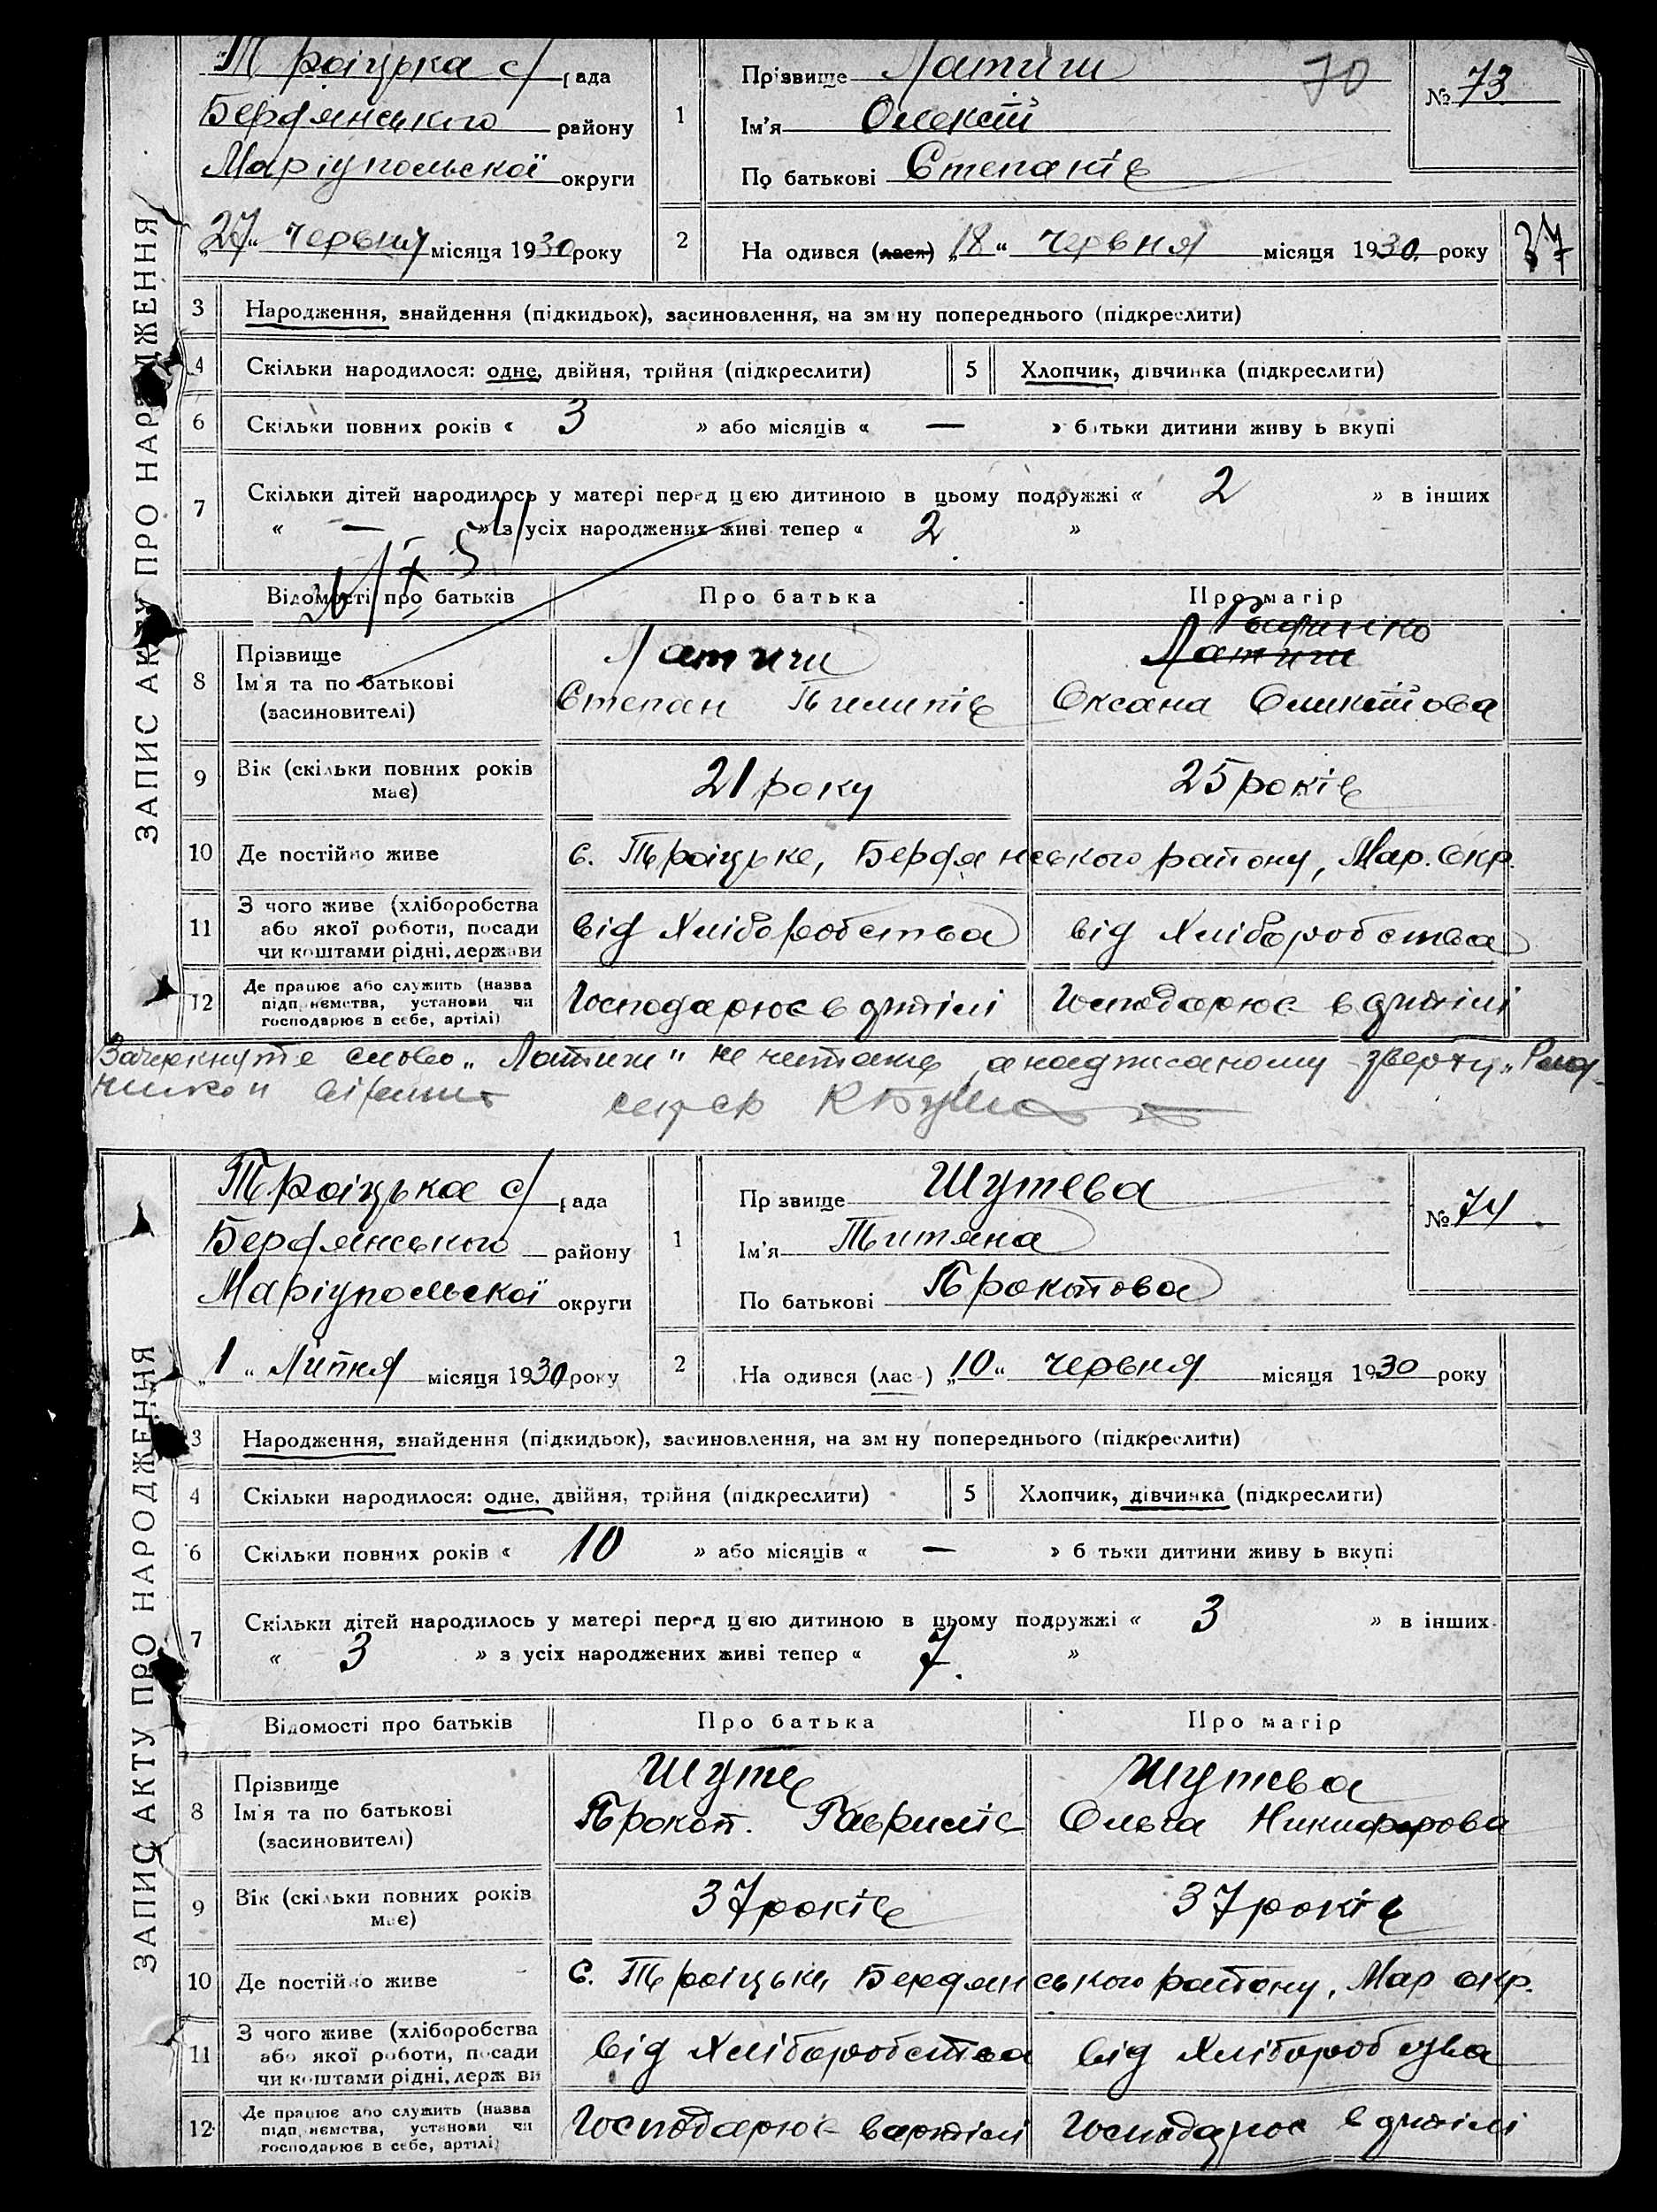 Троіцька с/рада
Бердянського району
Маріупольскоі округи
„27“ червня місяця 1930 року
1
Прізвище Латиш
70
№ 73
Ім'я Олексій
По батькові Степанів
2
На одився (лася) „18“ червня місяця 1930 року
37
ЗАПИС АКТУ ПРО НАРОДЖЕННЯ
3 Народження, знайдення (підкидьок), засиновлення, на зм ну попереднього (підкреслити)
4 Скільки народилося: одне, двійня, трійня (підкреслити) 5 Хлопчик, дівчинка (підкреслити)
6 Скільки повних років « 3 » або місяців « — » батьки дитини живу ь вкупі
7 Скільки дітей народилось у матері перед цею дитиною в цьому подружжі « 2 » в інших
« — » з усіх народжених живі тепер « 2 »
Відомості про батьків Про батька Про матір
8 Прізвище
Ім'я та по батькові
(засиновителі)
Латиш
Степан Пилипів
Латиш
Оксана
9 Вік (скільки повних років має) 21 року 25 років
10 Де постійно живе с. Троіцьке, Бердянського району, Мар. Окр.
11 З чого живе (хліборобства
або якої роботи, посади
чи коштами рідні, держави
від Хліборобства від Хліборобства
12 Де працює або служить (назва
підп иємства, установи чи
господарює в себе, артілі)
Господарює в артілі Господарює в артілі
Зачеркнуте слово „Латиш" не читати, а надписаному зверху
секр
Троіцька с/рада
Бердянського району
Маріупольскоі округи
„1“ Липня місяця 1930 року
1
Пр звище Шутева
№ 74
Ім'я Титяна
По батькові Прокопова
2
На одився (лас ) „10“ червня місяця 1930 року
ЗАПИС АКТУ ПРО НАРОДЖЕННЯ
3 Народження, знайдення (підкидьок), засиновлення, на зм ну попереднього (підкреслити)
4 Скільки народилося: одне, двійня, трійня (підкреслити) 5 Хлопчик, дівчинка (підкреслити)
6 Скільки повних років « 10 » або місяців « — » б тьки дитини живу ь вкупі
7 Скільки дітей народилось у матері перед цею дитиною в цьому подружжі « 3 » в інших
« 3 » з усіх народжених живі тепер « 7 »
Відомості про батьків Про батька Про матір
8 Прізвище
Ім'я та по батькові
(засиновителі)
Шутів
Прокоп. Гаврилів
Шутева
Ольга Никифорова
9 Вік (скільки повних років має) 37 років 37 років
10 Де постійно живе с. Троіцьке Бердянського району, Мар окр.
11 З чого живе (хліборобства
або якої роботи, посади
чи коштами рідні, держ ви
від Хліборобства від Хліборобства
12 Де працює або служить (назва
підп иємства, установи чи
господарює в себе, артілі)
Господарює в артілі Господарює в артілі